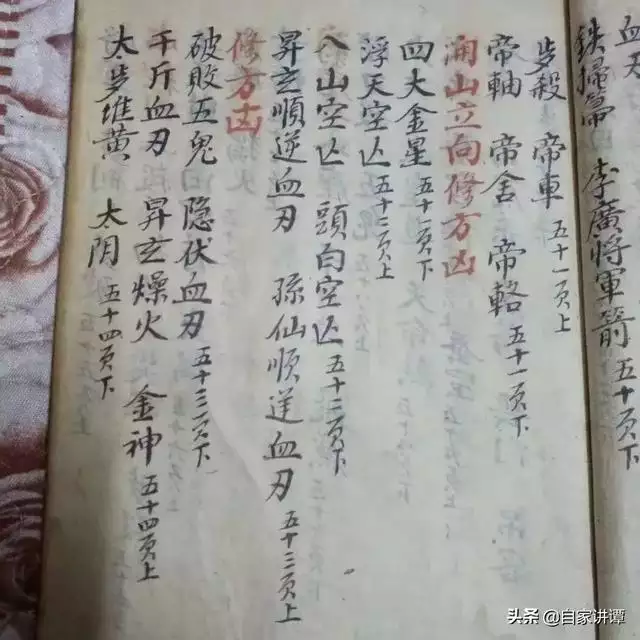 血刃
鉄掃帚 李廣將軍箭 五十页下
步殺 帝車 五十一页上
帝軸 帝舍 帝輅 五十一页下
開山立向修方凶
四大金星 五十一页下
浮天空亡 五十二页上
八山空亡 頭白空亡 五十二页下
昇玄順逆血刃 孫仙順逆血刃 五十三页上
修方凶
破敗五鬼 隐伏血刃 五十三页下
千斤血刃 昇玄燥火 金神 五十四页上
太步堆黄 太阴 五十四页下
头条 @自家讲谭